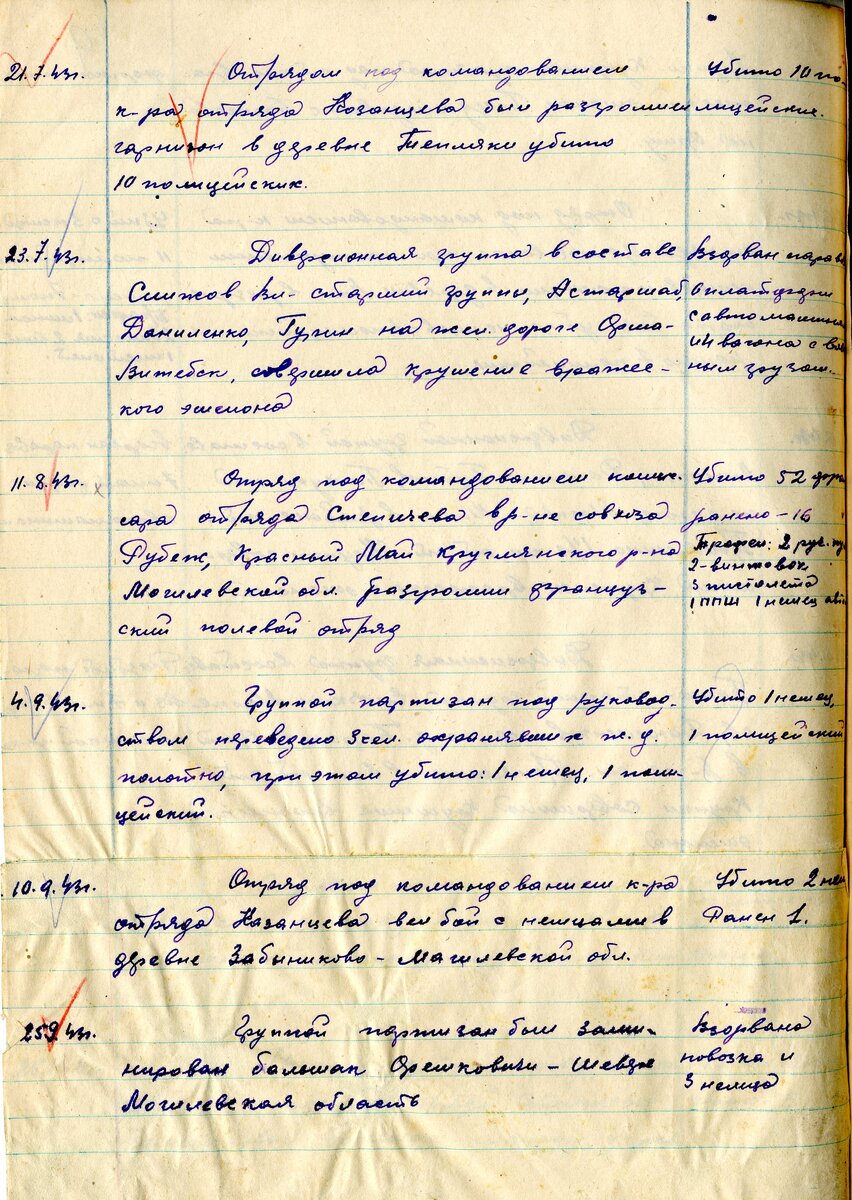 21.7.43г.
Отрядом под командованием
к-ра отряда Казанцева был разгромлен
гарнизон в деревне Тепляки убито
10 полицейских.
Убито 10 по-
лицейских.
23.7.43г.
Диверсионная группа в составе
Вл- старший группы,
Даниленко, на жел. дороге Орша-
Витебск, совершила крушение вражес-
кого эшелона
Взорван парово
6 платформ
с автомашина
и 4 вагона с
ным грузом.
11.8.43г.
Отряд под командованием комис-
сара отряда Степичева в р-не совхоза
Рубеж, Красный Май Круглянского р-на
Могилевской обл. разгромили француз-
ский полевой отряд
Убито 52 фр
ранено - 16
Трофеи: 2 руч.
2-винтовок
3 пистолета
1 ППШ 1 немец. авт
4.9.43г.
Группой партизан под руковод-
ством переведено 3 чел. охранявших ж.д.
полотно, при этом убито: 1 немец, 1 поли-
цейский.
Убито 1 немец,
1 полицейский
10.9.43г.
Отряд под командованием к-ра
отряда Казанцева вел бой с немцами в
деревне Забыниково - Магилевской обл.
Убито 2 нем
Ранен 1.
25.9.43г.
Группой партизан был зами-
нирован большак Орешковичи -
Могилевская область
Взорвана
повозка и
3 немца